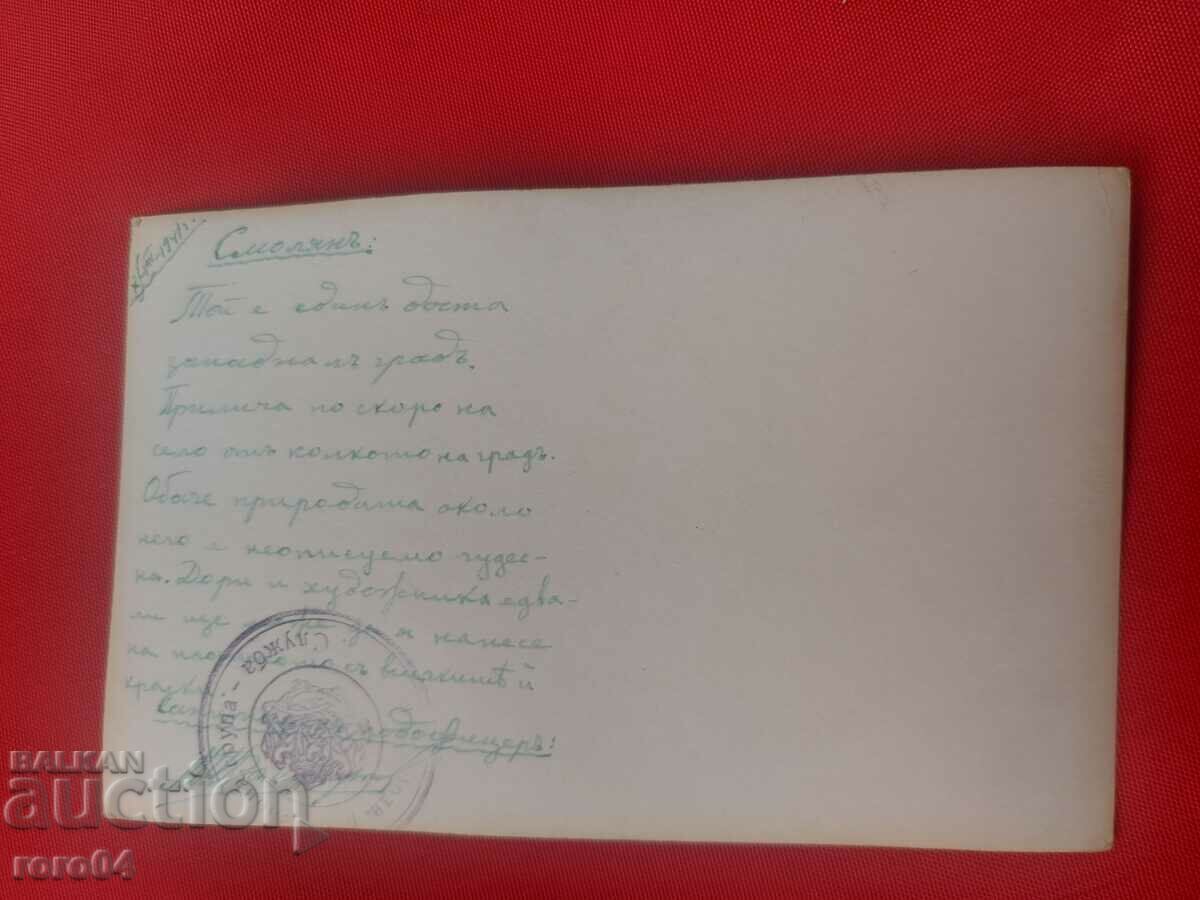 1941 г.
Смолянъ:
Той е единъ доста
западналъ градъ.
Прилича по скоро на
село отъ колкото на градъ.
Обаче природата около
него е неописуемо чудес-
на. Дори и художника едва-
ли ще да я нанесе
на съ всичкитѣ й
подофицеръ:
Служба
BALKAN
auction
roro04